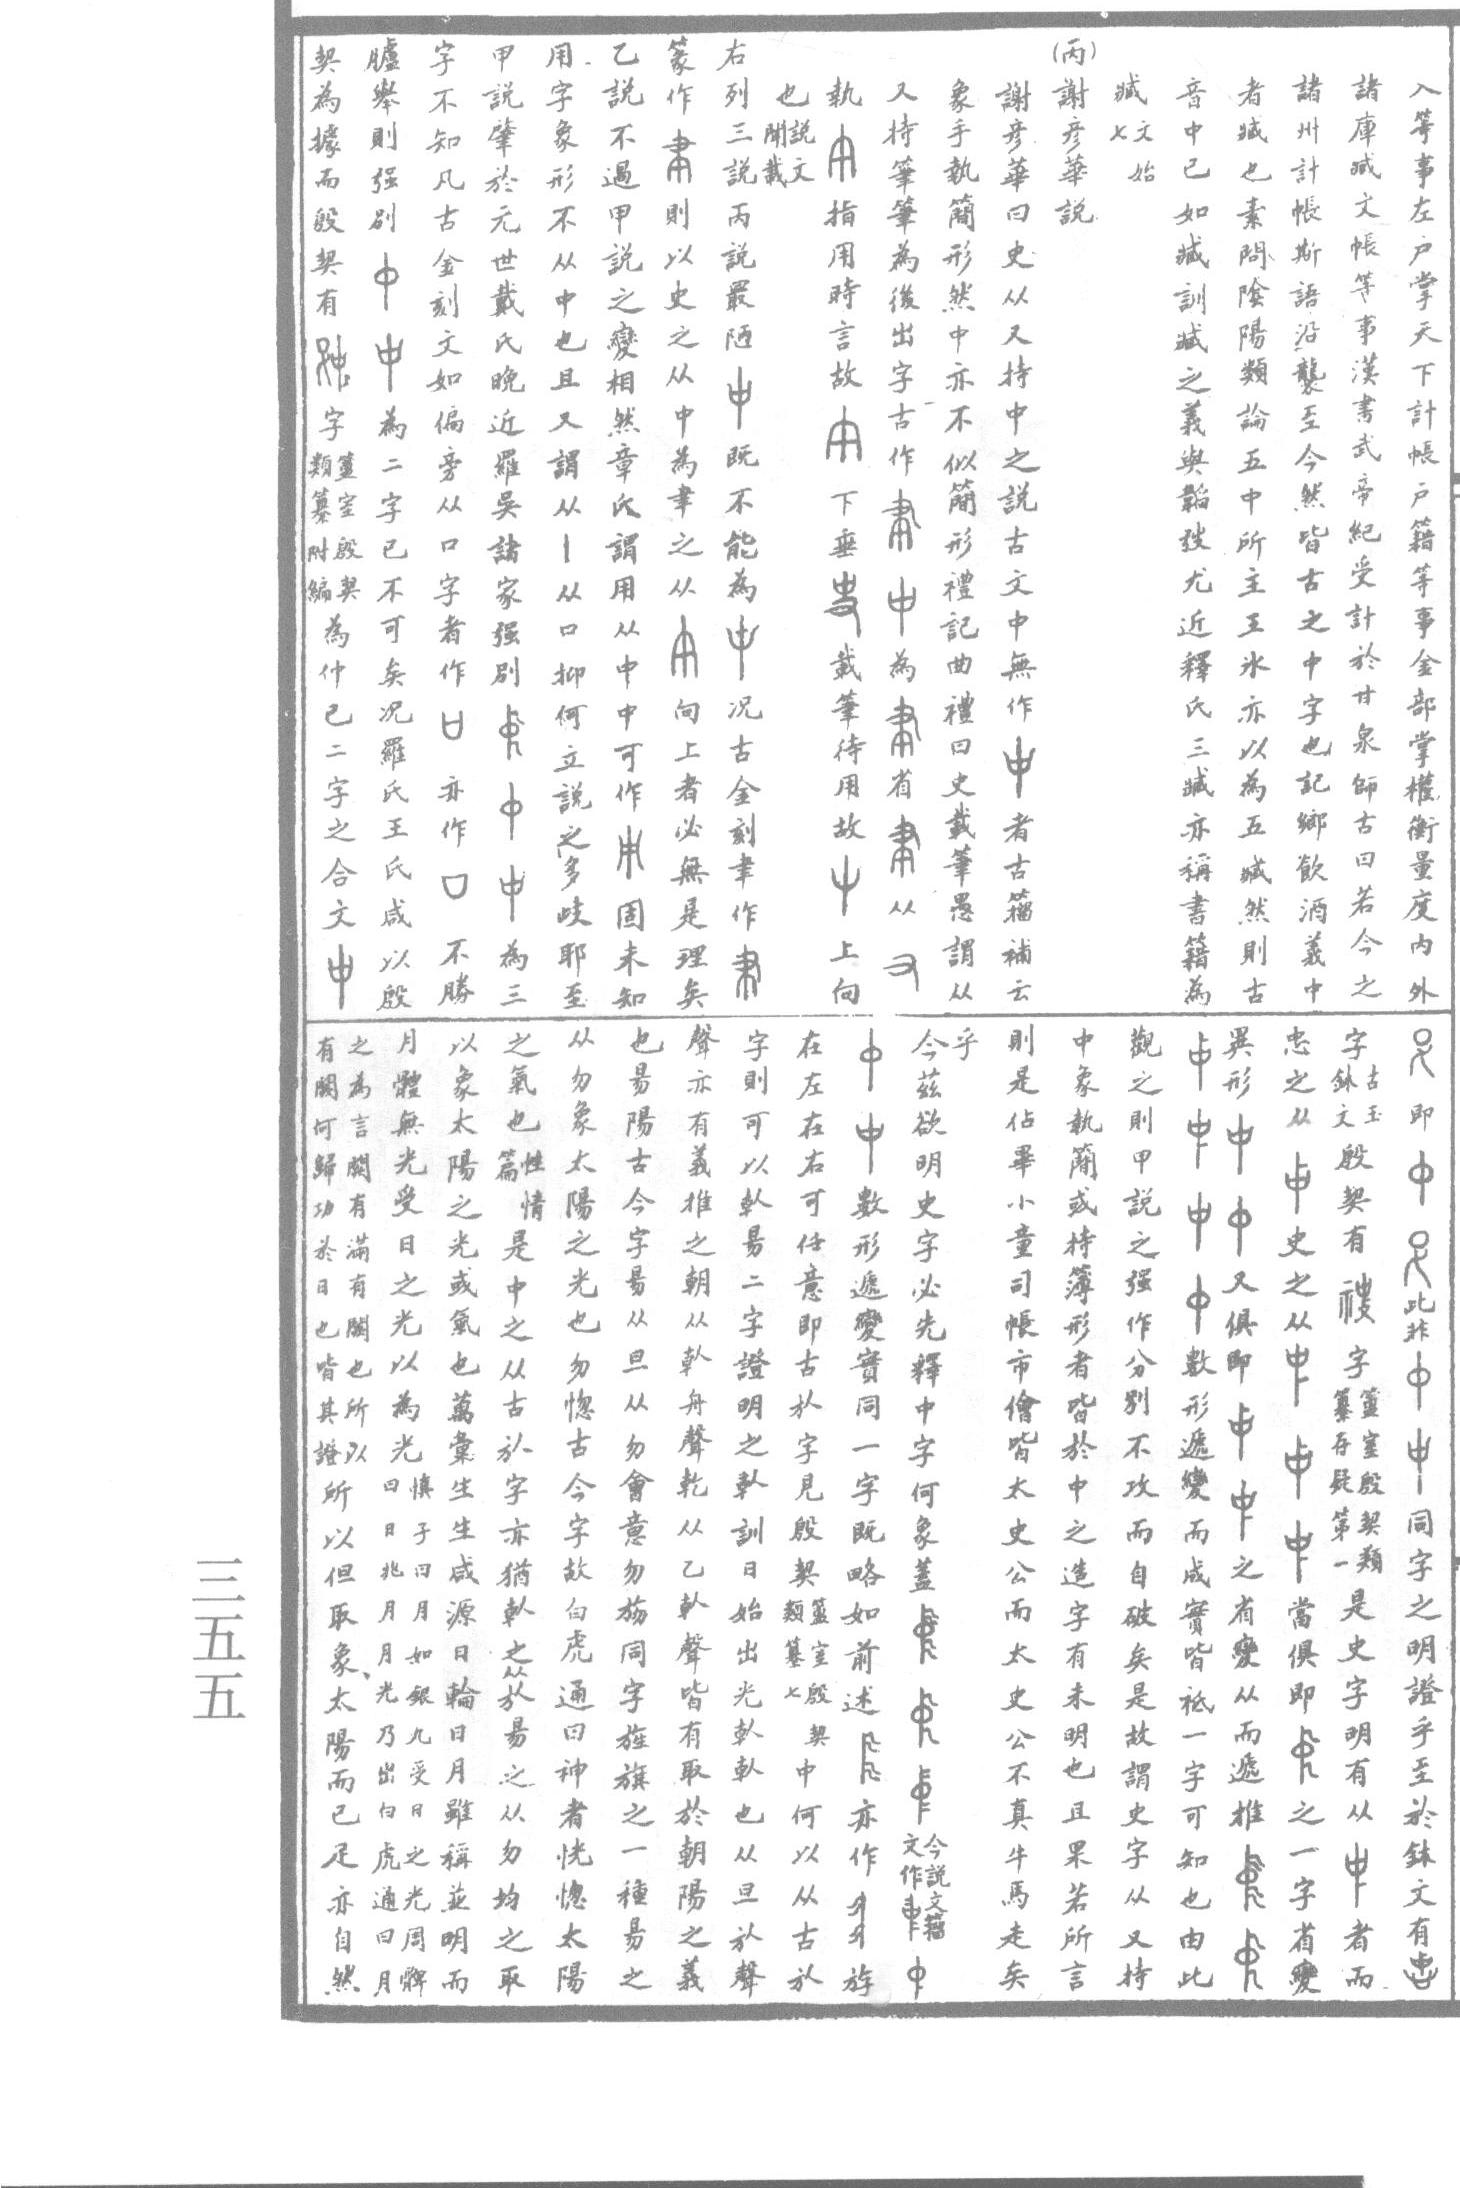 入等事左户掌天下計帳户籍等事金部掌權衡量度內外
諸庫臧文帳等事漢書武帝紀受計於甘泉師古曰若今之
諸州計帳斯語沿襲至今然皆古之中字也記鄉飲酒義中
者臧也素問陰陽類論五中所主王氷亦以為五臧然則古
音中已如臧訓臧之義與韜弢尤近釋氏三臧亦稱書籍為
臧文始七
(丙)謝彥華説
謝彥華曰史从又持中之説古文中無作者古籀補云
象手執簡形然中亦不似簡形禮記曲禮曰史載筆愚謂从
又持筆筆為後出字古作為省从
執指用時言故下垂載筆待用故上向
也説文聞載
右列三説丙説最陋既不能為况古金刻聿作
篆作則以史之从中為聿之从向上者必無是理矣
乙説不過甲説之變相然章氏謂用从中中可作固未知
用字象形不从中也且又謂从丨从口抑何立説之多歧耶至
甲説肇於元世戴氏晚近羅吳諸家强別為三
字不知凡古金刻文如偏旁从口字者作亦作不勝
臚舉則强別為二字已不可矣况羅氏王氏咸以殷
契為據而殷契有字簠室殷契類纂附編為仲已二字之合文
即此非同字之明證乎至於鉥文有
字古玉鉥文殷契有字簠室殷契類纂存疑第一是史字明有从者而
忠之从史之从當俱即之一字省變
異形又俱即之省變从而遞推
數形遞變而成實皆祇一字可知也由此
觀之則甲説之强作分別不攻而自破矣是故謂史字从又持
中象執簡或持簿形者皆於中之造字有未明也且果若所言
則是佔畢小童司帳市儈皆太史公而太史公不真牛馬走矣
乎
今茲欲明史字必先釋中字何象蓋今説文籀文作
數形遞變實同一字既略如前述亦作斿
在左在右可任意即古㫃字見殷契簠室殷契類纂七中何以从古㫃
字則可以倝昜二字證明之倝訓日始出光倝倝也从旦㫃聲
聲亦有義推之朝从倝舟聲乾从乙倝聲皆有取於朝陽之義
也昜陽古今字昜从旦从勿會意勿㫍同字旌旗之一種昜之
从勿象太陽之光也勿惚古今字故白虎通曰神者恍惚太陽
之氣也性情篇是中之从古㫃字亦猶倝之从㫃昜之从勿均之取
以象太陽之光或氣也萬彙生生咸源日輪日月雖稱並明而
月體無光受日之光以為光慎子曰月如銀丸受日之光周髀曰日兆月月光乃出白虎通曰月
之為言闕有滿有闕也所以有闕何歸功於日也皆其證所以但取象太陽而已足亦自然
三五五